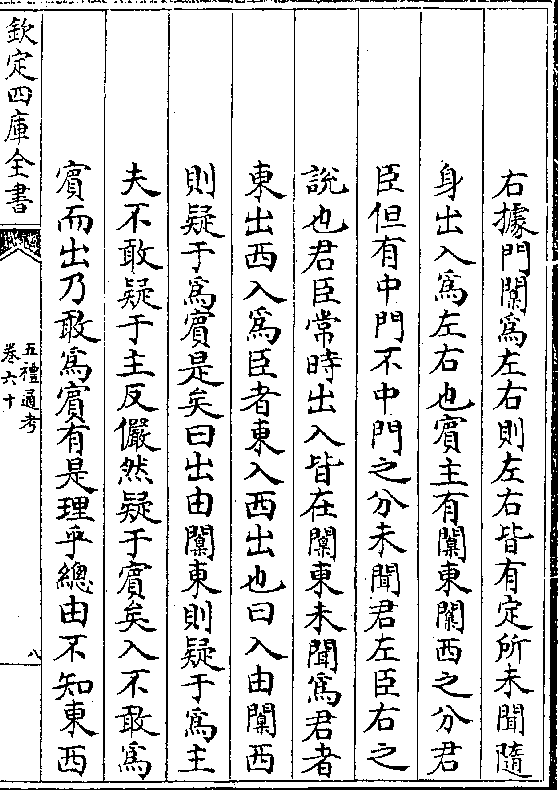 右據門闑為左右則左右皆有定所未聞隨
身出入為左右也賓主有闑東闑西之分君
臣但有中門不中門之分未聞君左臣右之
說也君臣常時出入皆在闑東未聞為君者
東出西入為臣者東入西出也曰入由闑西
則疑于為賓是矣曰出由闑東則疑于為主
夫不敢疑于主反儼然疑于賓矣入不敢為
賓而出乃敢為賓有是理乎總由不知東西
欽定四庫全書
五禮通考
卷六十
八